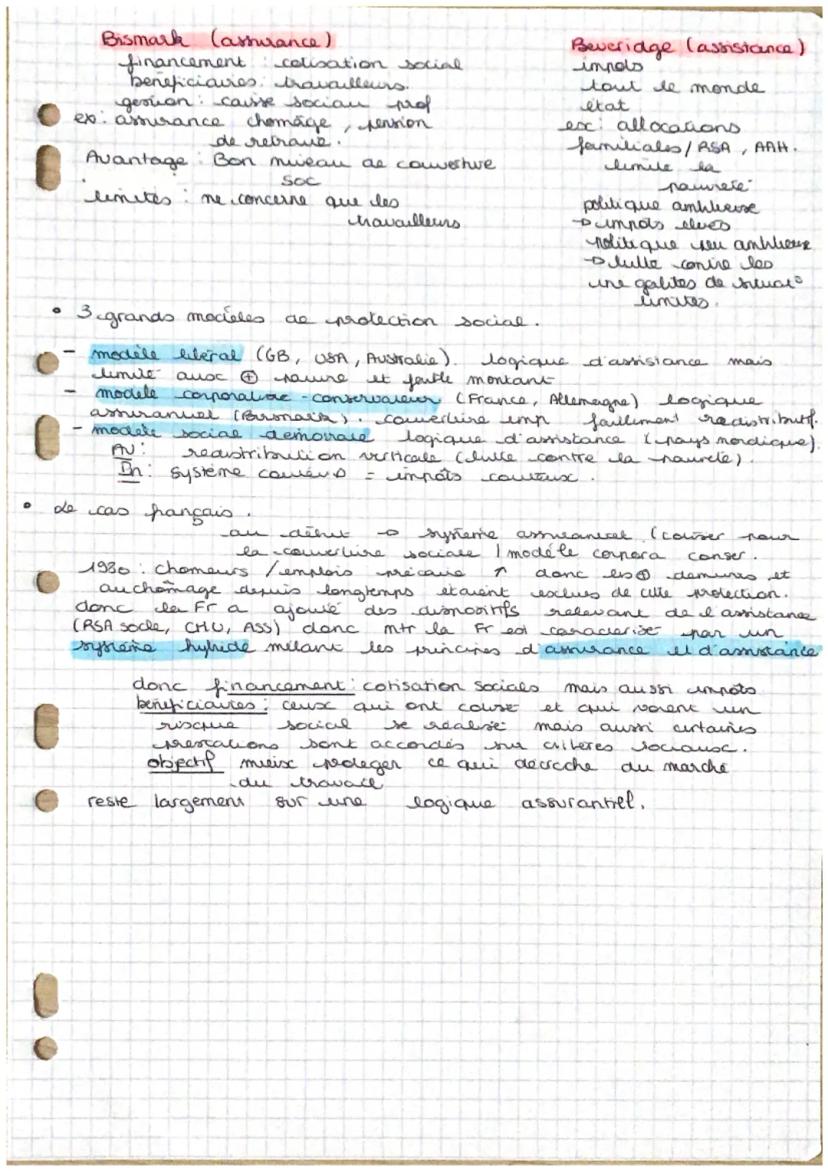 Bismark (assurance)
financement : cotisation social
beneficiaires : travailleurs.
gestion : caisse sociau prof
ex : assurance chomage, pension
de retraite.
Avantage : Bon niveau de couverture
soc
limites : ne concerne que les
travailleurs
Beveridge (assistance)
impots
tout le monde
etat
ex : allocations
familiales / RSA, AAH.
limite la
pauvreté
politique ambitieuse
→ impots elves
politique peu ambitieux
→ lutte contre les
inegalites de situat°
limites.
• 3 grands modeles de protection social.
- modèle liberal (GB, USA, Australie). logique d'assistance mais
limité aux ⊕ pauvre et faible montant
- modele corporatise - conservateur (France, Allemagne) logique
assuranciel (Bismark). couverture imp faiblement redistributif.
- modele social democrate logique d'assistance (pays nordique).
AV : redistribution verticale (lutte contre la pauvreté).
In : Système couteux = impôts couteux.
• Le cas français.
au début → système assuranciel (cotiser pour
la couverture sociale / modéle corpora conser.
1980 : chomeurs / emplois précaire ↑ donc les ⊕ demunis et
au chômage depuis longtemps etaient exclues de cette protection.
donc la Fr a ajouté des dispositifs relevant de l'assistance
(RSA socle, CMU, ASS) donc mtn la Fr est caracterisé par un
système hybride mélant les principes d'assurance et d'assistance
donc financement : cotisation socials mais aussi impots
beneficiaires : ceux qui ont cotisé et qui voient un
risque social se réalisé mais aussi certaines
prestations sont accordés sur critères sociaux.
objectif mieix proteger ce qui décroche du marché
du travail
reste largement sur une logique assurantiel.